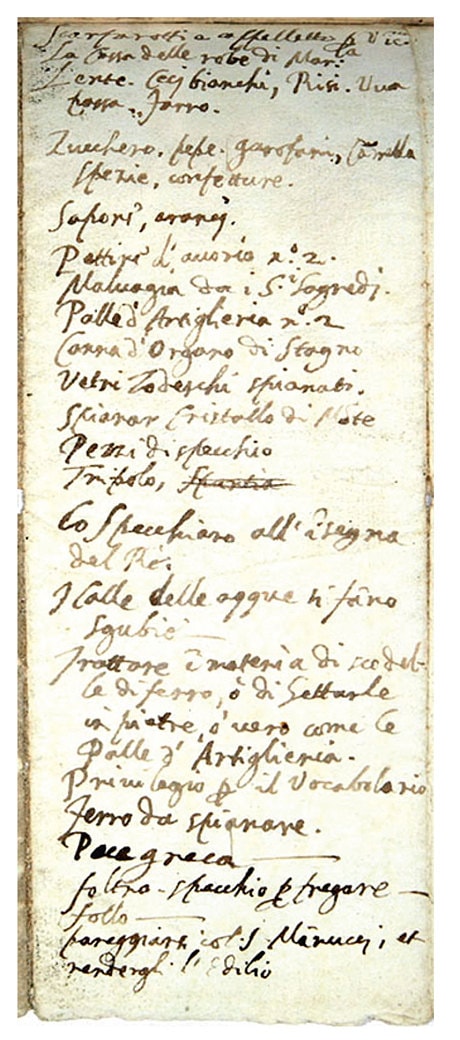 Scarfarotti a cappelletto p Vic.
La Cassa delle robe di Mar.ta
Lente. Ceci bianchi, Risi. Uva
passa. Farro.
Zucchero. pepe. garofani, Canella
spezie, confetture.
Saponi, aranci.
Pettini d'avorio n.o 2.
Malvagia da i S.i Sagredi.
Palle d'Artiglieria n.o 2
Canna d'Organo di Stagno
Vetri Todeschi spianati.
Spianar Cristallo di Mote
Pezzi di specchio
Tripolo,
Lo Specchiaro all'isegna
del Rè.
I Calle delle aqque si fano
sgubie
Trattare i materia di scodel-
le di ferro, ò di Gettarle
in pietre, ò vero come le
Palle d'Artiglieria.
Privilegio p il Vocabolario
Ferro da spianare.
Pece greca
feltro. specchio p fregare
follo
pareggiarsi col S. Manucci, et
rendergli l'Edilio